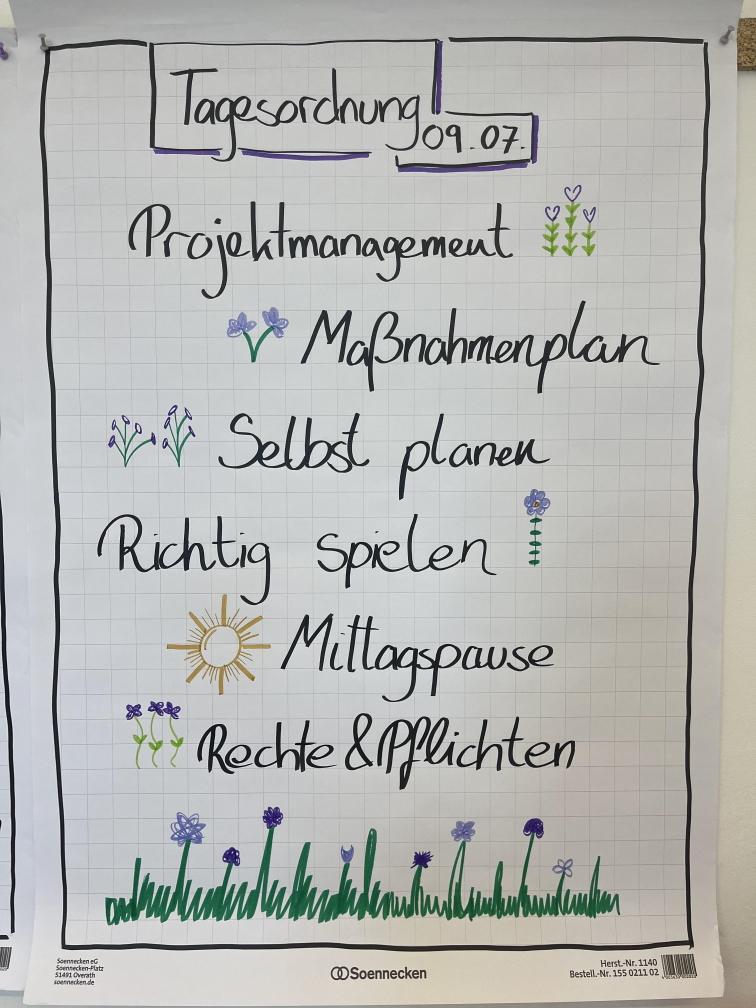 Tagesordnung
09.07.
Projektmanagement
Maßnahmenplan
Selbst planen
Richtig spielen
Mittagspause
Rechte & Pflichten
Soennecken eG
Soennecken-Platz
51491 Overath
soennecken.de
Soennecken
Herst.-Nr. 1140
Bestell.-Nr. 155 0211 02